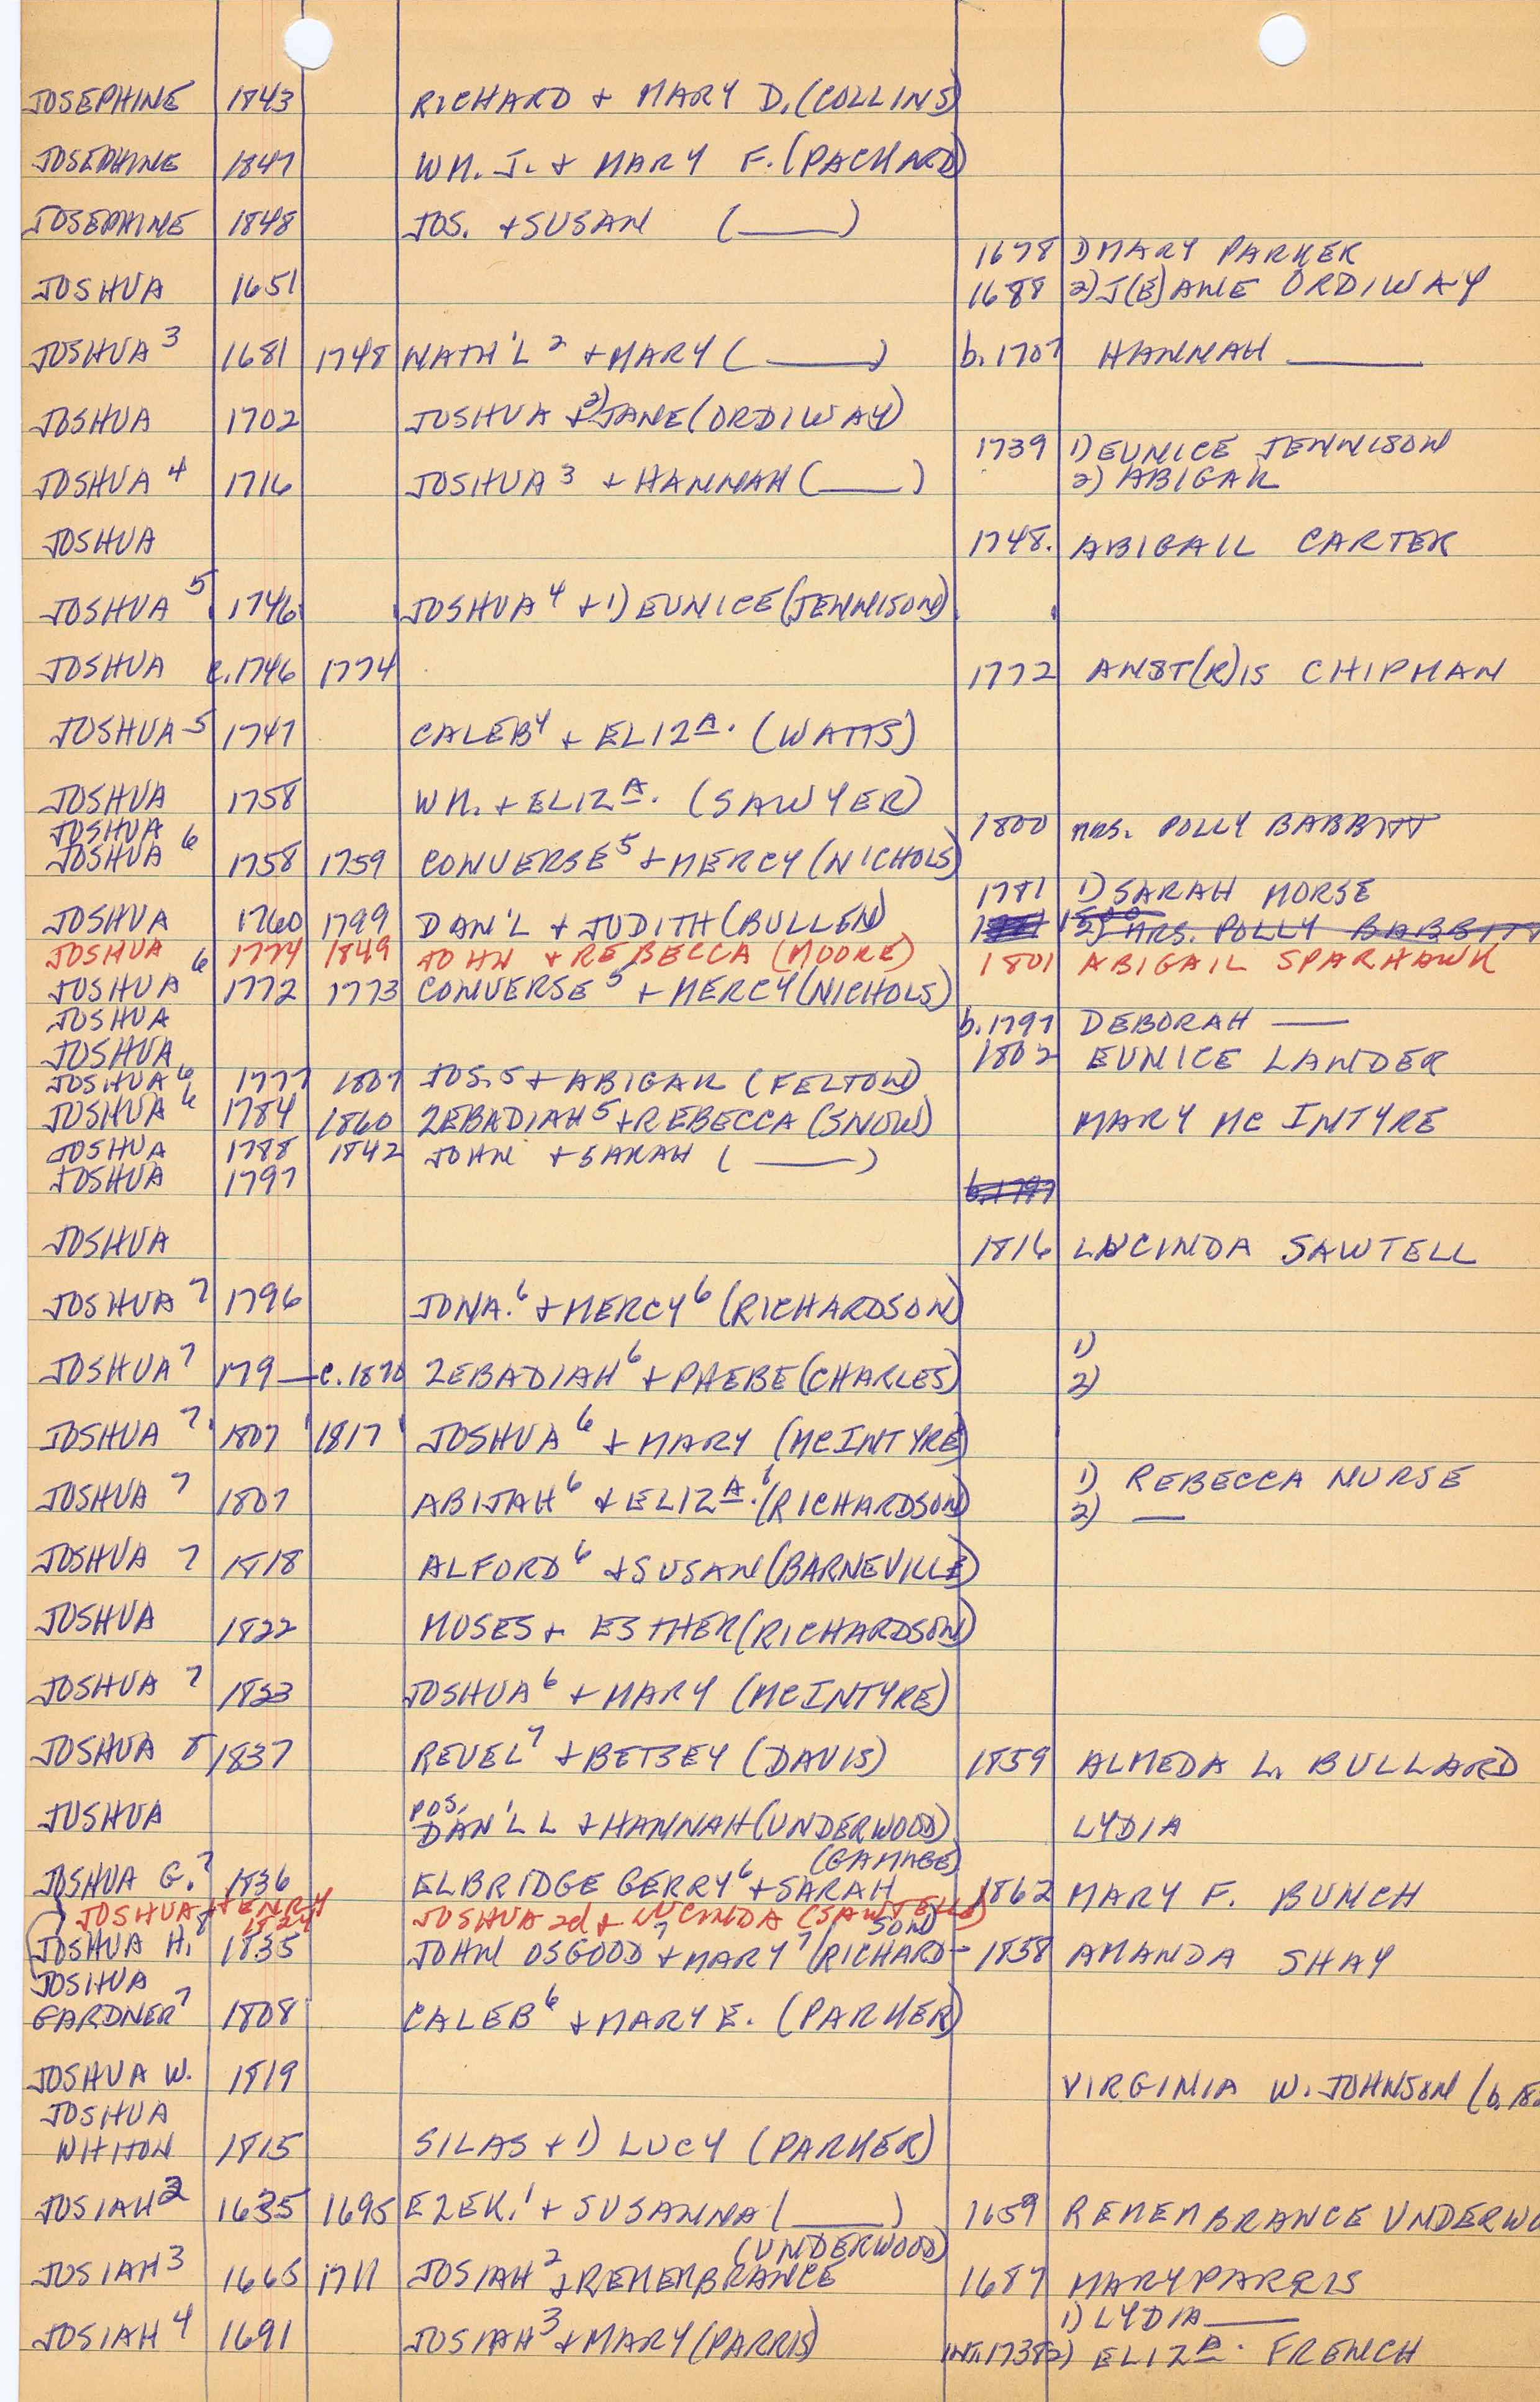 JOSEPHINE 1843 RICHARD + MARY D. (COLLINS)
JOSEPHINE 1847 WM. J. + MARY F. (PACKARD)
JOSEPHINE 1848 JOS. + SUSAN (____)
1678 1) MARY PARKER
JOSHUA 1651 1688 2) J(E)ANE ORDIWAY
JOSHUA 3 1681 1748 NATH'L 2 + MARY (____) b. 1707 HANNAH ____
JOSHUA 1702 JOSHUA + 2) JANE (ORDIWAY)
1739 1) EUNICE JENNISON
JOSHUA 4 1716 JOSHUA 3 + HANNAH (____) 2) ABIGAIL
JOSHUA 1748. ABIGAIL CARTER
JOSHUA 5 1746 JOSHUA 4 + 1) EUNICE (JENNISON)
JOSHUA c. 1746 1774 1772 ANST(R)IS CHIPMAN
JOSHUA 5 1747 CALEB 4 + ELIZA. (WATTS)
JOSHUA 1758 WM. + ELIZA. (SAWYER)
JOSHUA 1800 MRS. POLLY BABBITT
JOSHUA 6 1758 1759 CONVERSE 5 + MERCY (NICHOLS)
1781 1) SARAH MORSE
JOSHUA 1760 1799 DAN'L + JUDITH (BULLEN) 1800 2) MRS. POLLY BABBITT
JOSHUA 1774 1849 JOHN + REBECCA (MOORE) 1801 ABIGAIL SPARHAWK
JOSHUA 6 1772 1773 CONVERSE 5 + MERCY (NICHOLS)
JOSHUA b. 1797 DEBORAH ____
JOSHUA 1802 EUNICE LANDER
JOSHUA 6 1777 1807 JOS. 5 + ABIGAIL (FELTON)
JOSHUA 6 1784 1860 ZEBADIAH 5 + REBECCA (SNOW) MARY MC INTYRE
JOSHUA 1788 1842 JOHN + SARAH (____)
JOSHUA 1797 b. 1797
JOSHUA 1816 LUCINDA SAWTELL
JOSHUA 7 1796 JONA. 6 + MERCY 6 (RICHARDSON)
1)
JOSHUA 7 179__ c. 1870 ZEBADIAH 6 + PHEBE (CHARLES) 2)
JOSHUA 7 1807 1817 JOSHUA 6 + MARY (MCINTYRE)
1) REBECCA NURSE
JOSHUA 7 1807 ABIJAH 6 + ELIZA. 6 (RICHARDSON) 2) __
JOSHUA 7 1818 ALFORD 6 + SUSAN (BARNEVILLE)
JOSHUA 1822 MOSES + ESTHER (RICHARDSON)
JOSHUA 7 1823 JOSHUA 6 + MARY (MCINTYRE)
JOSHUA 8 1837 REUEL 7 + BETSEY (DAVIS) 1859 ALMEDA L. BULLARD
POS.
JOSHUA DAN'L L + HANNAH (UNDERWOOD) LYDIA
(GAMAGE)
JOSHUA G. 7 1836 ELBRIDGE GERRY 6 + SARAH 1862 MARY F. BUNCH
JOSHUA HENRY 1824 JOSHUA 2d + LUCINDA (SAWTELL)
SON)
JOSHUA H. 8 1835 JOHN OSGOOD 7 + MARY 7 (RICHARD- 1858 AMANDA SHAY
JOSHUA
GARDNER 7 1808 CALEB 6 + MARY E. (PARKER)
JOSHUA W. 1819 VIRGINIA W. JOHNSON (b. 18
JOSHUA
WHITON 1815 SILAS + 1) LUCY (PARKER)
JOSIAH 2 1635 1695 EZEK. 1 + SUSANNA (____) 1659 REMEMBRANCE UNDERWO
(UNDERWOOD)
JOSIAH 3 1665 1711 JOSIAH 2 + REMEMBRANCE 1687 MARY PARRIS
1) LYDIA ____
JOSIAH 4 1691 JOSIAH 3 + MARY (PARRIS) INT. 1738 2) ELIZA. FRENCH